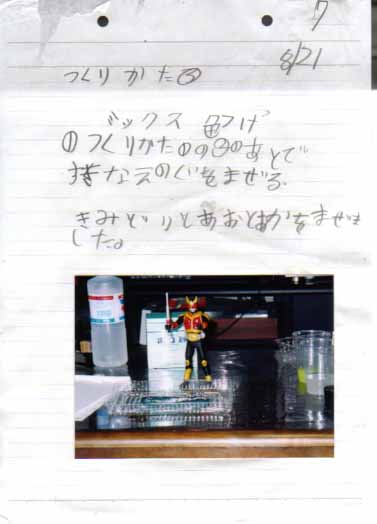 7
8/21
つくりかた
ックス 色つけ
①つくりかた①の③のあとで
なえのぐをまぜる。
きみどりとあおとあかをまぜま
した。